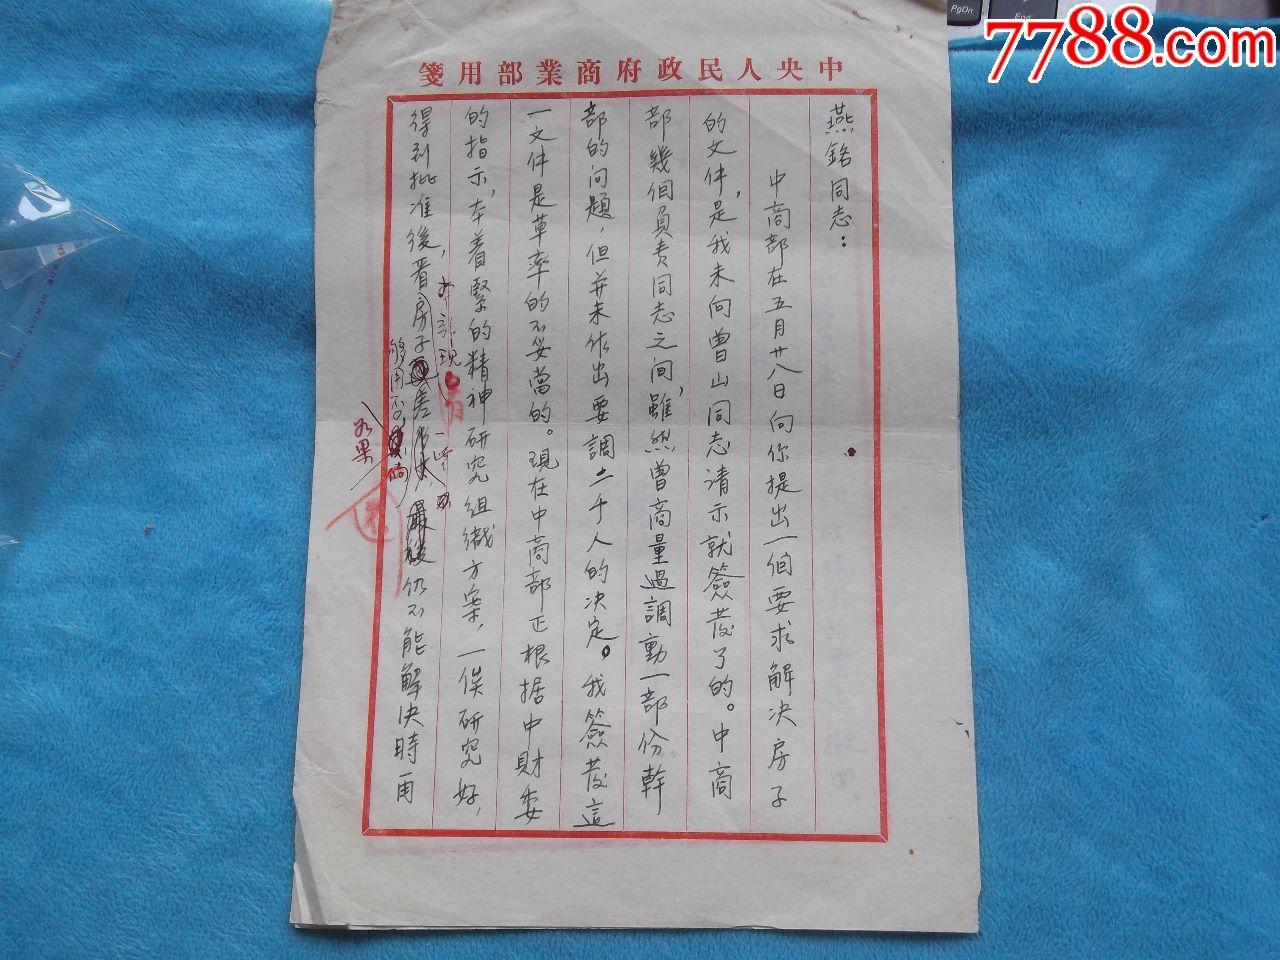 7788.com
PgDn
End
中央人民政府商業部用箋
燕銘同志：
中商部在五月廿八日向你提出一個要求解決房子
的文件，是我未向曾山同志请示就簽发了的。中商
部幾個負责同志之间，雖然曾商量過調動一部份幹
部的问題，但并未作出要調二千人的决定。我簽发這
一文件是草率的不妥當的。現在中商部正根据中財委
的指示，本着緊的精神研究組織方案，一俟研究好，
得到批准後，看房子
够用否，
如果
最後仍不能解决時再